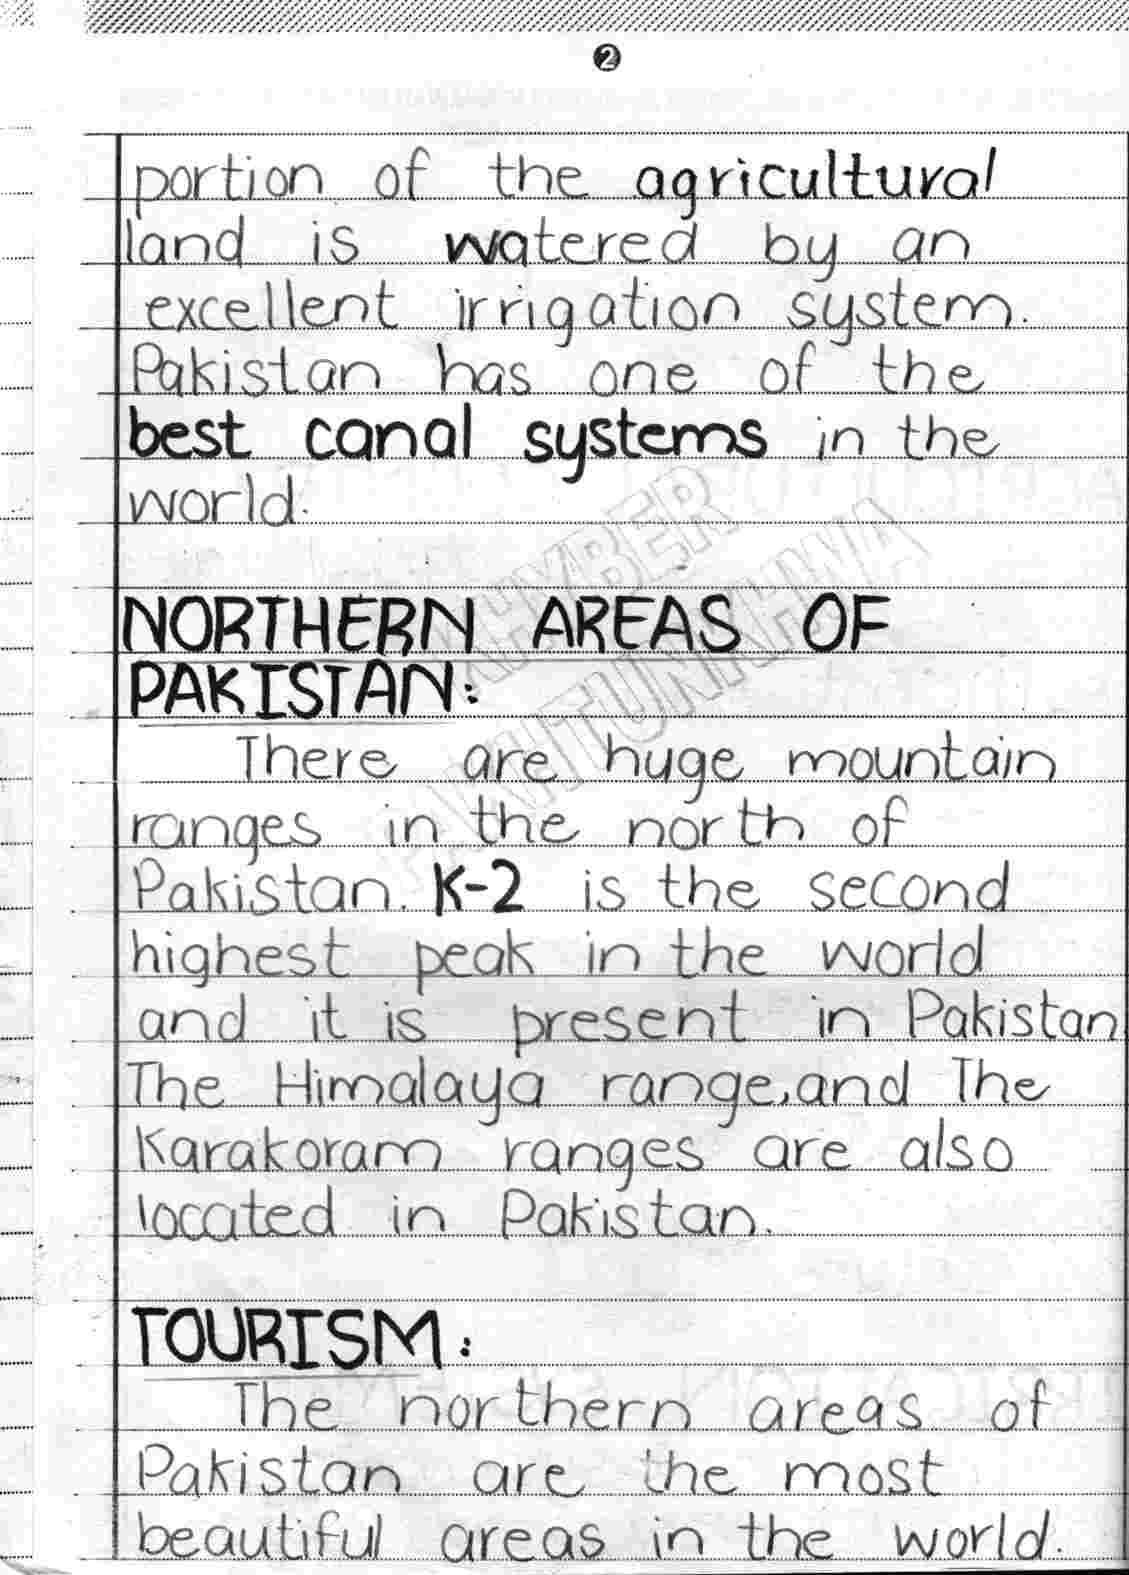 2
portion of the agricultural
land is watered by an
excellent irrigation system.
Pakistan has one of the
best canal systems in the
world.
KHYBER
PAKHTUNKHWA
NORTHERN AREAS OF
PAKISTAN:
There are huge mountain
ranges in the north of
Pakistan. K-2 is the second
highest peak in the world
and it is present in Pakistan
The Himalaya range, and The
Karakoram ranges are also
located in Pakistan.
TOURISM:
The northern areas of
Pakistan are the most
beautiful areas in the world.